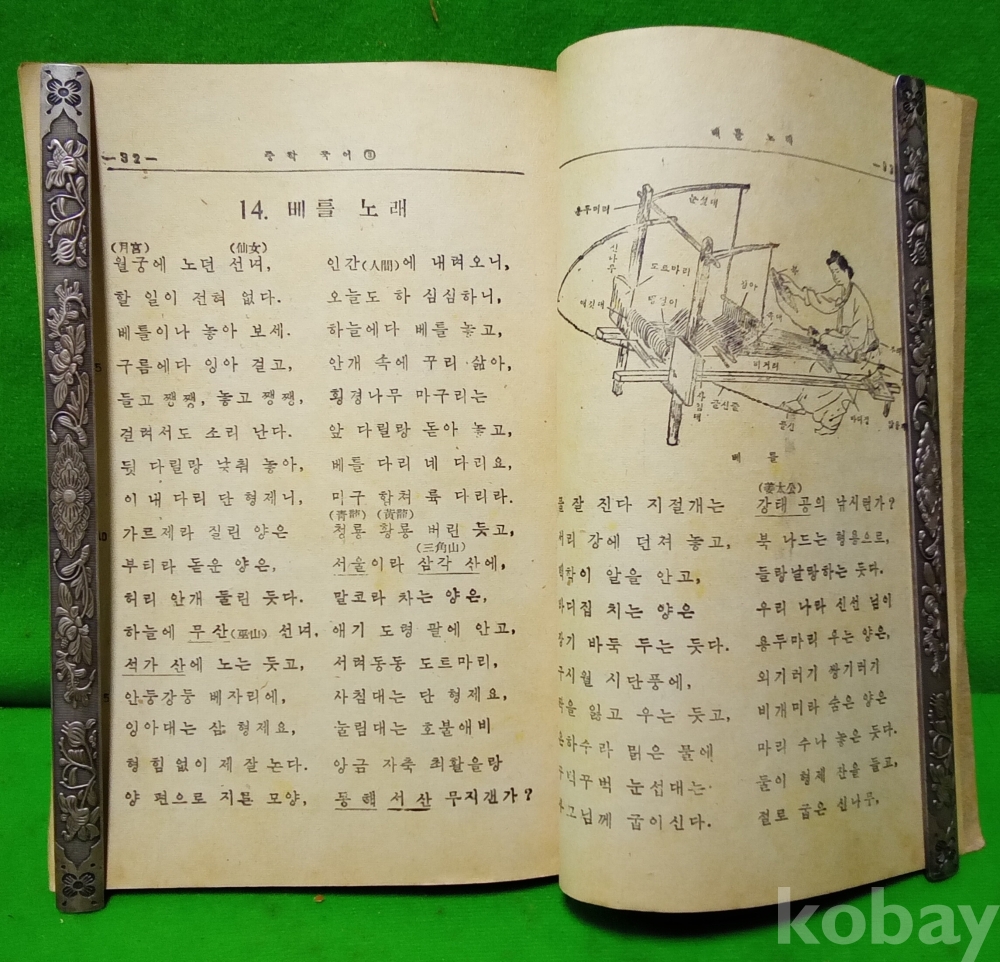 —92— 중학 국어 ③
14. 베틀 노래
(月宮) (仙女)
월궁에 노던 선녀, 인간(人間)에 내려오니,
할 일이 전혀 없다. 오늘도 하 심심하니,
베틀이나 놓아 보세. 하늘에다 베틀 놓고,
구름에다 잉아 걸고, 안개 속에 꾸리 삶아,
들고 쨍쨍, 놓고 쨍쨍, 횡경나무 마구리는
걸려서도 소리 난다. 앞 다릴랑 돋아 놓고,
뒷 다릴랑 낮춰 놓아, 베틀 다리 네 다리요,
이 내 다리 단 형제니, 미구 합쳐 륙 다리라.
(青龍) (黃龍)
가르제라 질린 양은 청룡 황룡 버린 듯고,
(三角山)
부티라 돋운 양은, 서울이라 삼각 산에,
허리 안개 둘린 듯다. 말코라 차는 양은,
하늘에 무산(巫山) 선녀, 애기 도령 팔에 안고,
석가 산에 노는 듯고, 서려동동 도르마리,
안둥강둥 베자리에, 사침대는 단 형제요,
잉아대는 삼 형제요, 눌림대는 호불애비
형 힘없이 제 잘 논다. 앙금 자축 최활을랑
양 편으로 지른 모양, 동해 서산 무지갠가?
베틀 노래
용두머리
눈섭대
신나무
도르마리
잉아
북
비거리
끌신줄
베틀
(姜太公)
잘 진다 지절개는 강태 공의 낚시런가?
강에 던져 놓고, 북 나드는 형용으로,
알을 안고, 들랑날랑하는 듯다.
치는 양은 우리 나라 신선 님이
바둑 두는 듯다. 용두마리 우는 양은,
시단풍에, 외기러기 짱기러기
잃고 우는 듯고, 비개미라 숨은 양은
맑은 물에 마리 수나 놓은 듯다.
눈섭대는 둘이 형제 잔을 들고,
굽이신다. 절로 굽은 신나무,
kobay